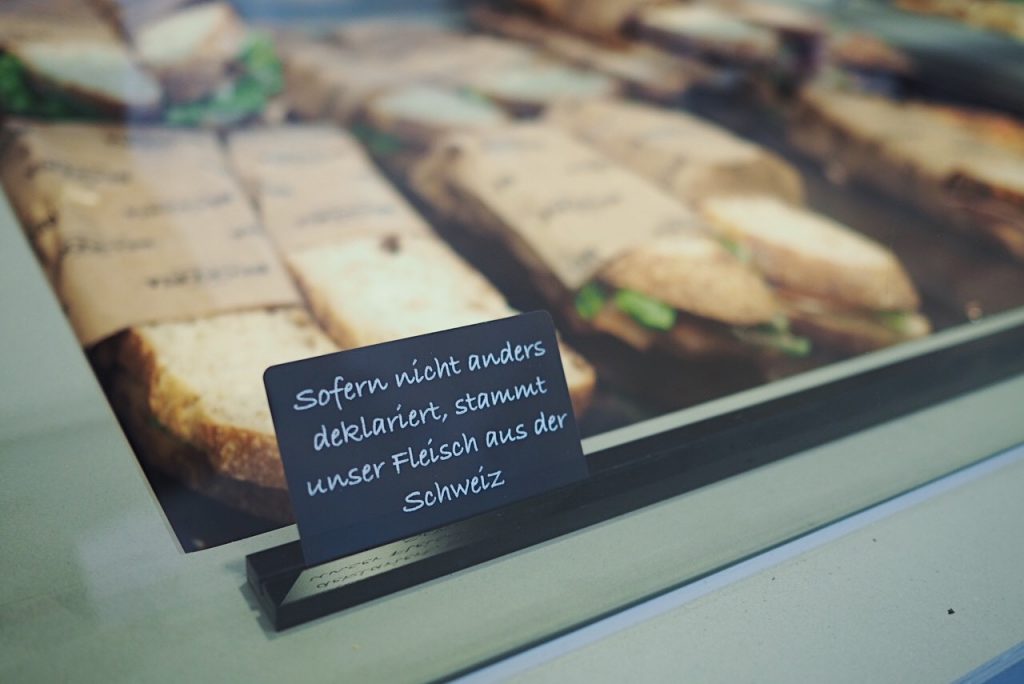 Sofern nicht anders
deklariert, stammt
unser Fleisch aus der
Schweiz